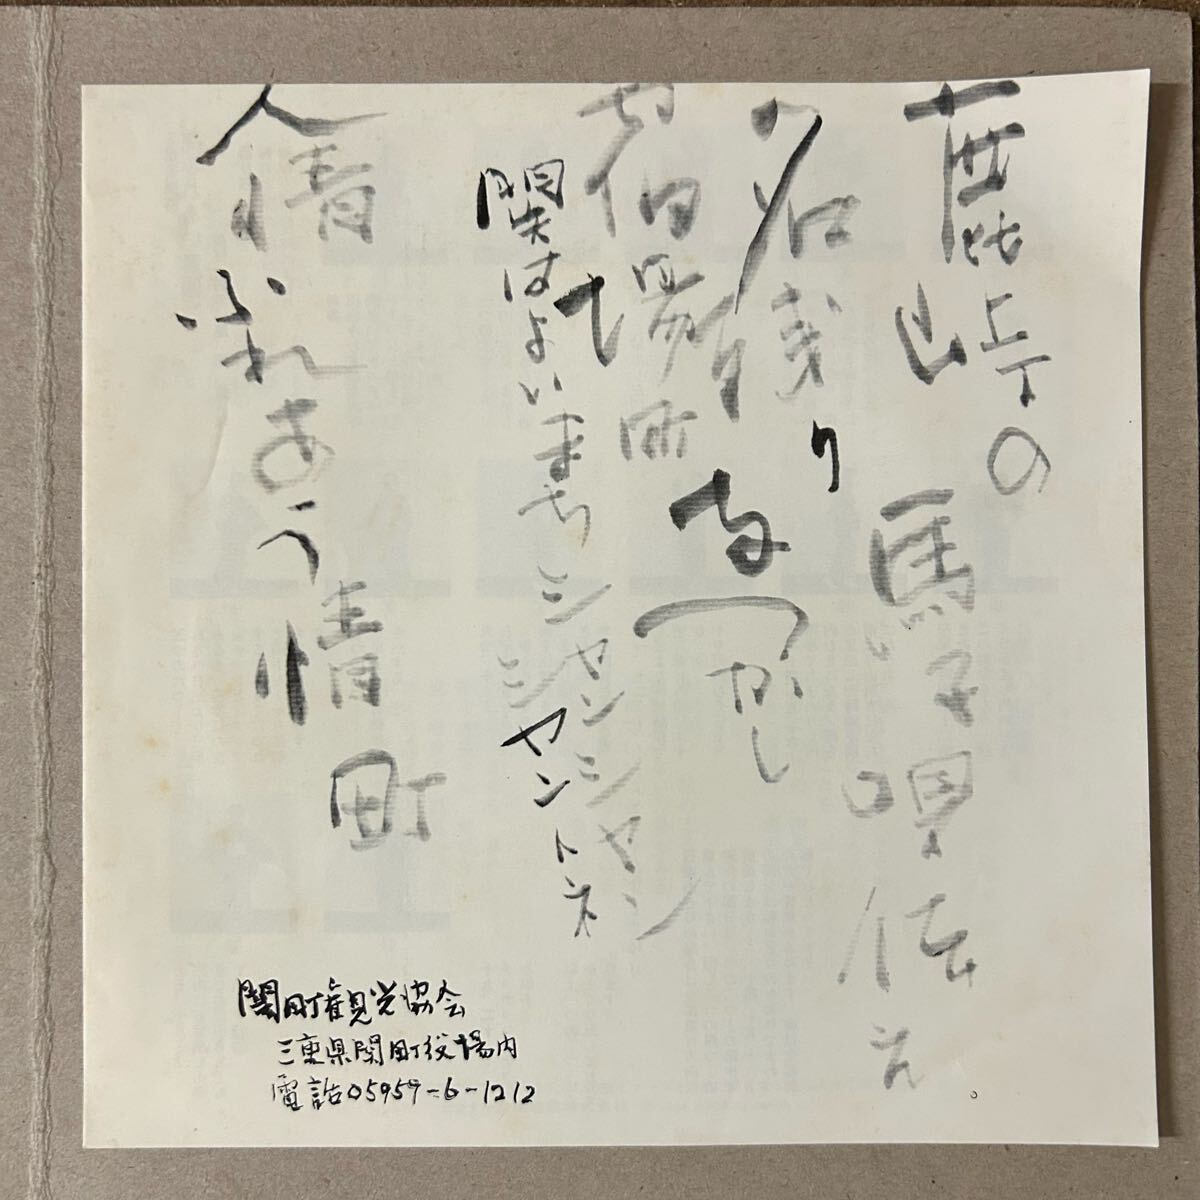 鹿峠の
馬子唄伝え
名残り
なつかし
宿場町
関はよいまち シャンシャン
シャントネ
人情
ふれあう情
町
関町観光協会
三重県関町役場内
電話05959-6-1212